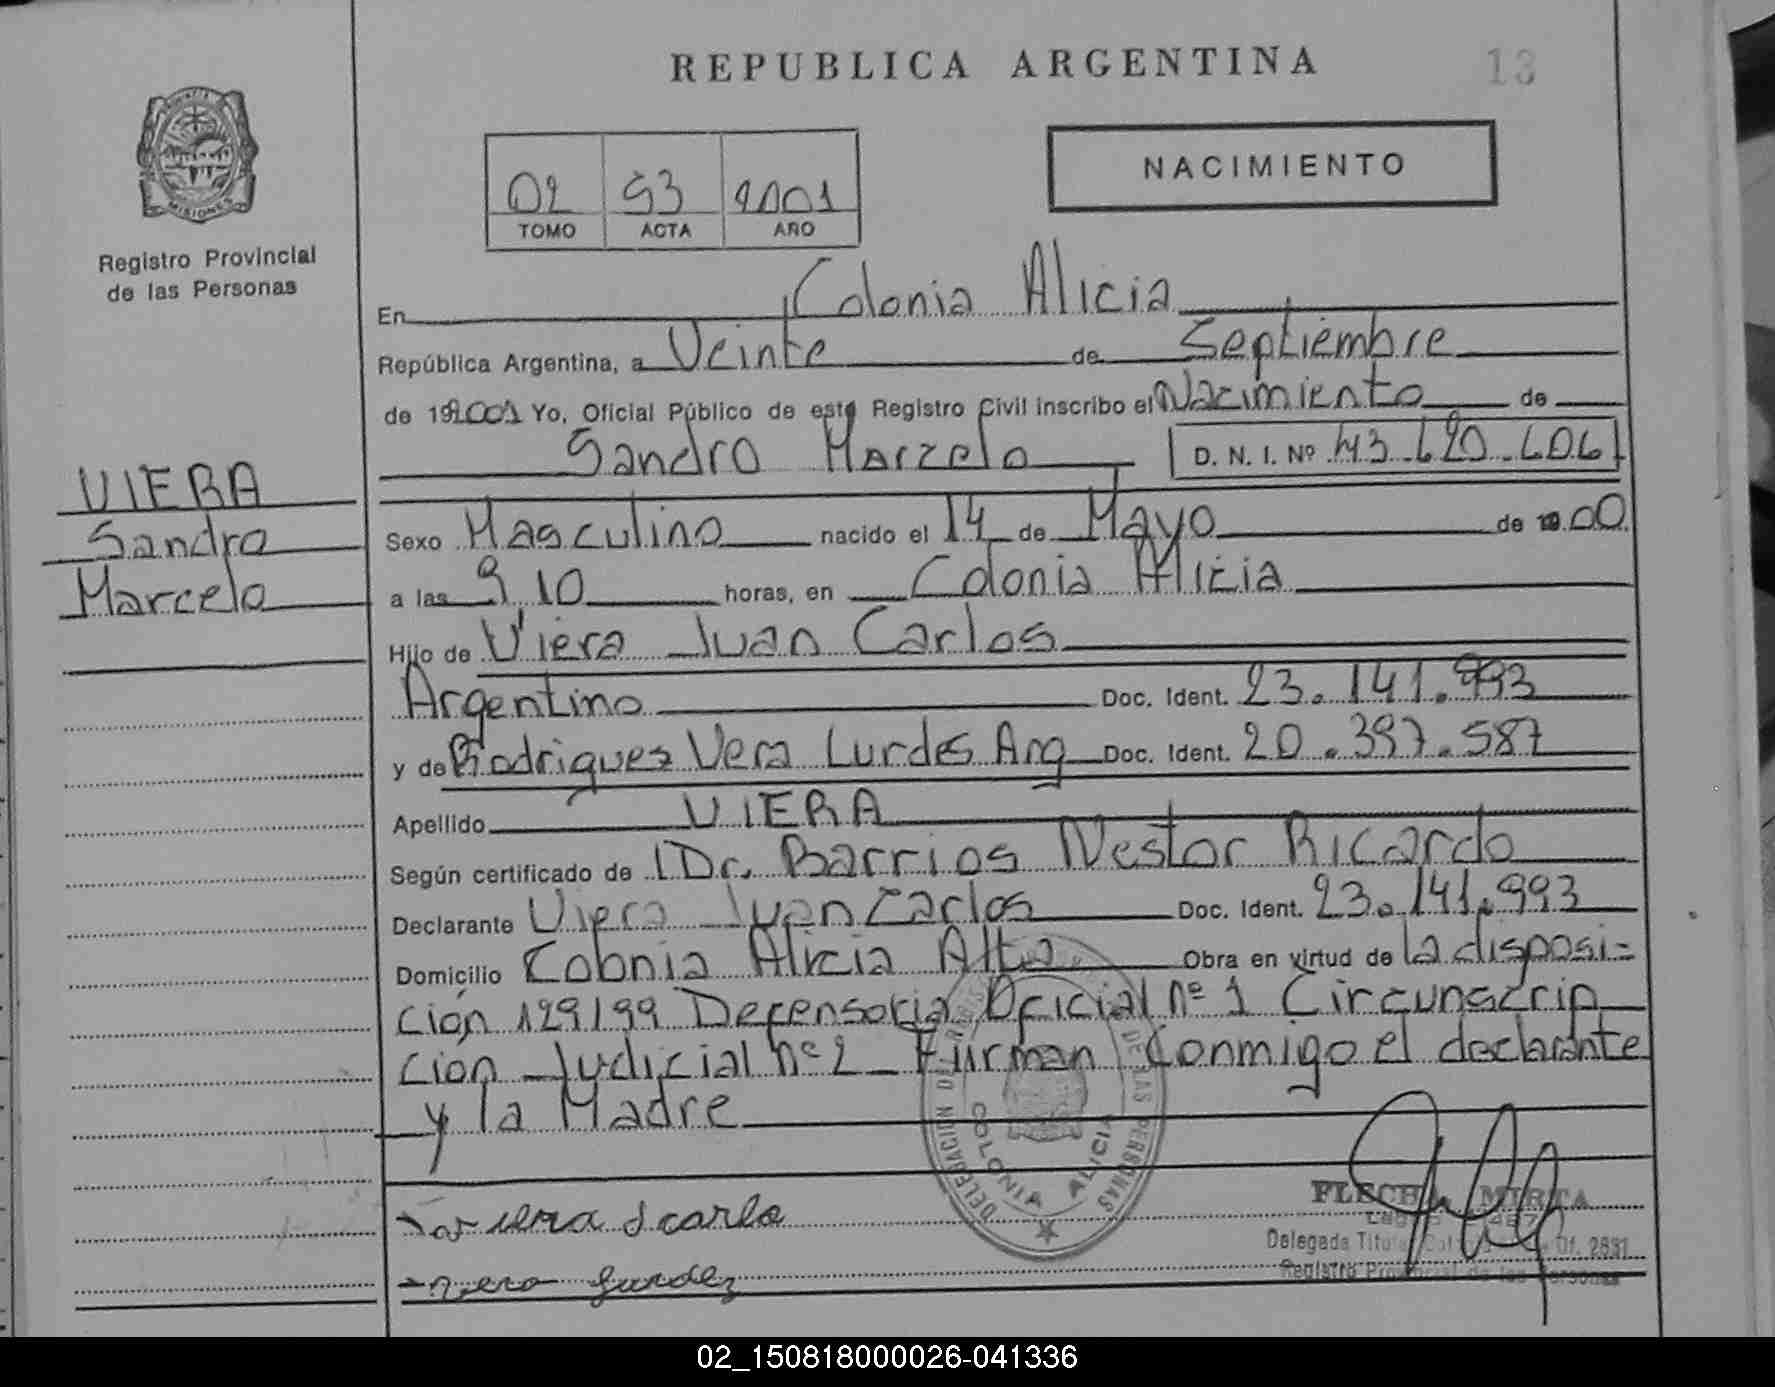 REPUBLICA ARGENTINA
13
NACIMIENTO
02 53 2001
TOMO ACTA AÑO
MISIONES
Registro Provincial
de las Personas
En Colonia Alicia
República Argentina, a Veinte de Septiembre
de 192001 Yo, Oficial Público de este Registro Civil inscribo el Nacimiento de
Sandro Marcelo D. N. I. Nº 43.620.606
VIERA
Sandro
Marcelo
Sexo Masculino nacido el 14 de Mayo de 00
a las 9 10 horas, en Colonia Alicia
Hijo de Viera Juan Carlos
Argentino Doc. Ident. 23.141.993
y de Rodriguez Vera Lurdes Arg Doc. Ident. 20.397.587
Apellido VIERA
Según certificado de Dr. Barrios Nestor Ricardo
Declarante Viera Juan Carlos Doc. Ident. 23.141.993
Domicilio Colonia Alicia Alta Obra en virtud de la disposi=
ción 129/99 Defensoria Oficial nº 1 Circunscrip
ción Judicial nº 2 Firman Conmigo el declarante
y la Madre
DELEGACION REGISTRO DE LAS PERSONAS
COLONIA ALICIA
MIRTA
Delegada Titular Of. 2831
Registro Provincial de las Personas
02_150818000026-041336